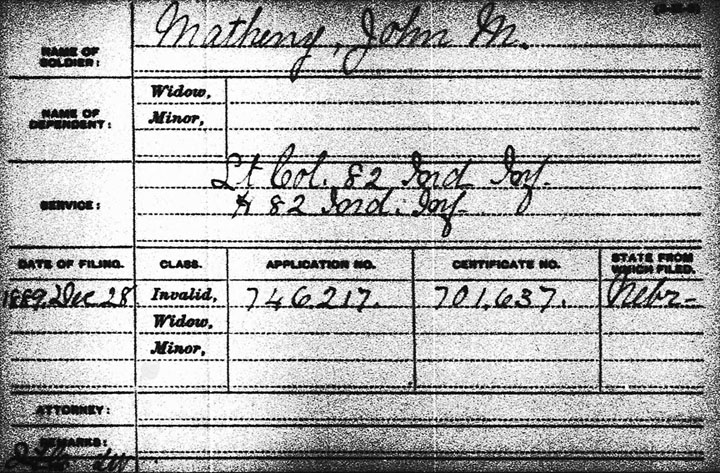 NAME OF SOLDIER: Matheny, John M.
NAME OF DEPENDENT: Widow,
Minor,
SERVICE: Lt Col. 82 Ind Inf.
& 82 Ind. Inf.
DATE OF FILING. CLASS. APPLICATION NO. CERTIFICATE NO. STATE FROM WHICH FILED.
1889, Dec 28 Invalid, 746.217. 701.637. Nebr-
Widow,
Minor,
ATTORNEY:
REMARKS: